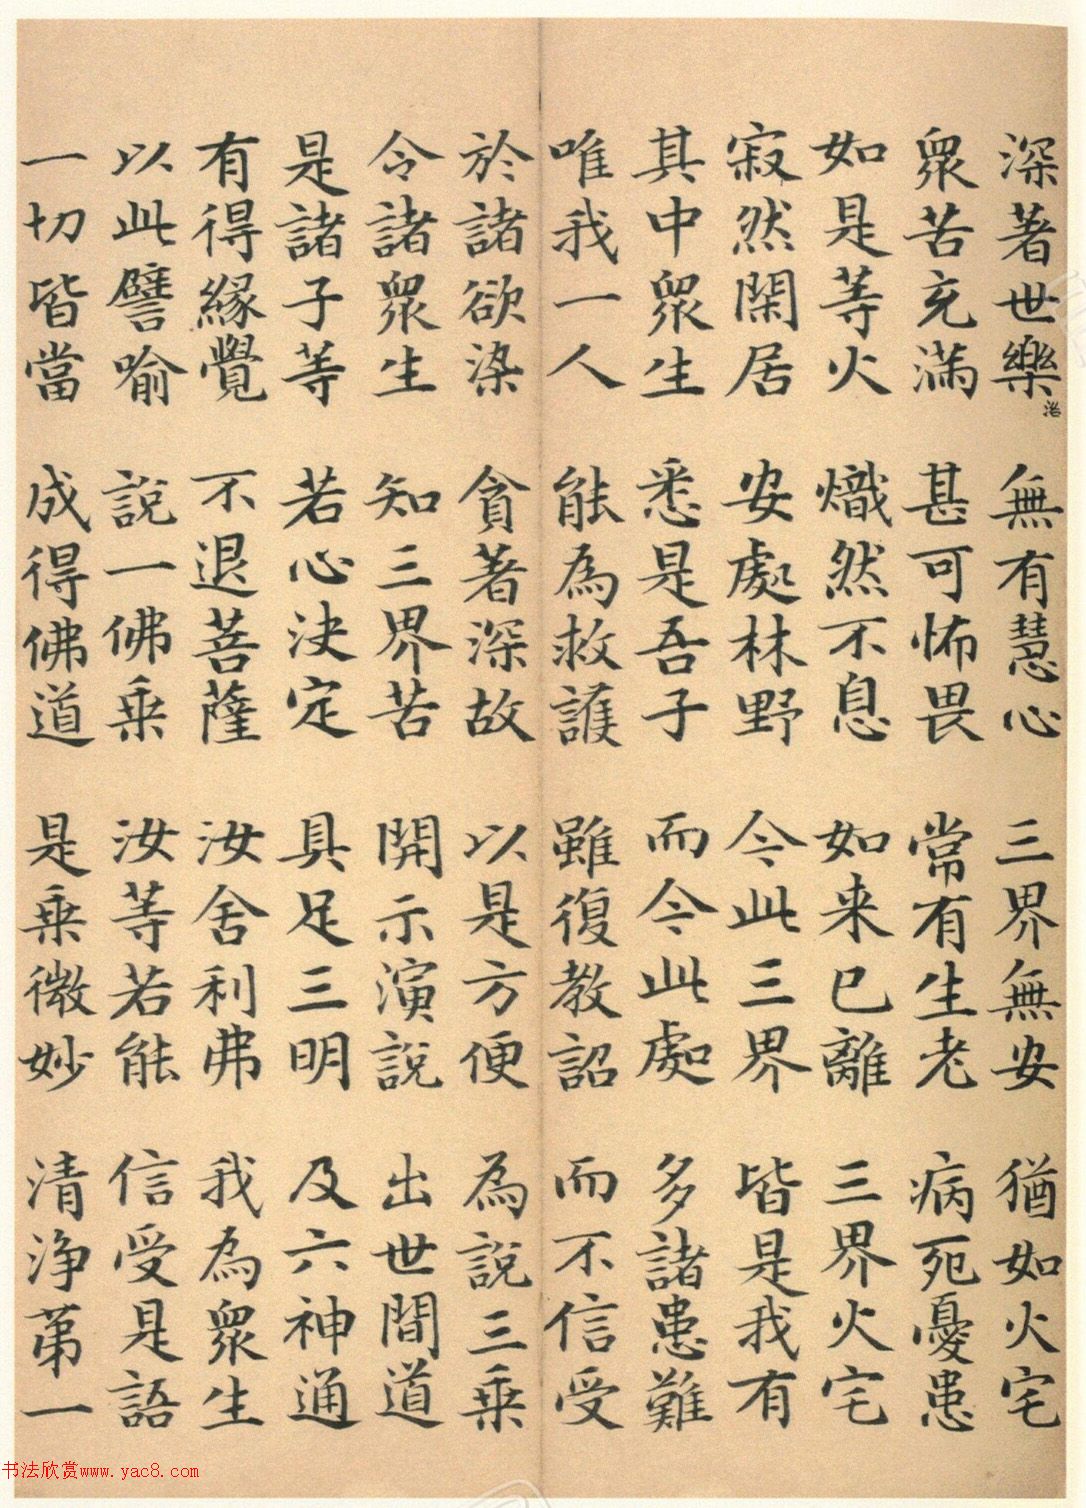 深著世樂洛 無有慧心 三界無安 猶如火宅
衆苦充滿 甚可怖畏 常有生老 病死憂患
如是等火 熾然不息 如来已離 三界火宅
寂然閑居 安處林野 今此三界 皆是我有
其中衆生 悉是吾子 而今此處 多諸患難
唯我一人 能為救護 雖復教詔 而不信受
於諸欲染 貪著深故 以是方便 為說三乗
令諸衆生 知三界苦 開示演說 出世間道
是諸子等 若心決定 具足三明 及六神通
有得緣覺 不退菩薩 汝舍利弗 我為衆生
以此譬喻 說一佛乗 汝等若能 信受是語
一切皆當 成得佛道 是乗微妙 清淨第一
书法欣赏www.yac8.com